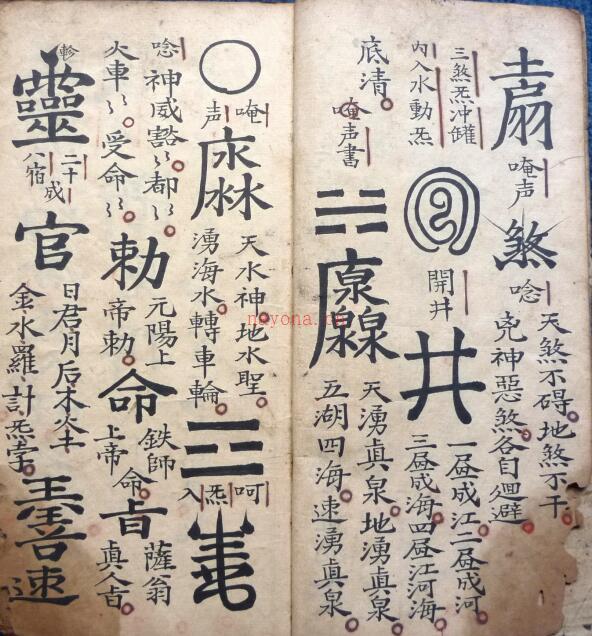 唵声
煞
唸
天煞不碍。地煞不干。
兇神惡煞。各自迴避。
三煞炁冲罐
內入水動炁
開井
井
一昼成江二昼成河。
三昼成海四昼江河海。
底清。
唵声書
天湧真泉。地湧真泉。
五湖四海。速湧真泉。
唵声
天水神。地水聖。
湧海水。轉車輪。
呵炁入
唸
神威豁〻。都〻。
火車〻。受命〻。
勅
元陽上
帝勅。
命
鉄師
上帝命。
旨
薩翁
真人旨。
軫
靈
二十八宿成
官
日君月后木火土
金水羅計炁孛。
速